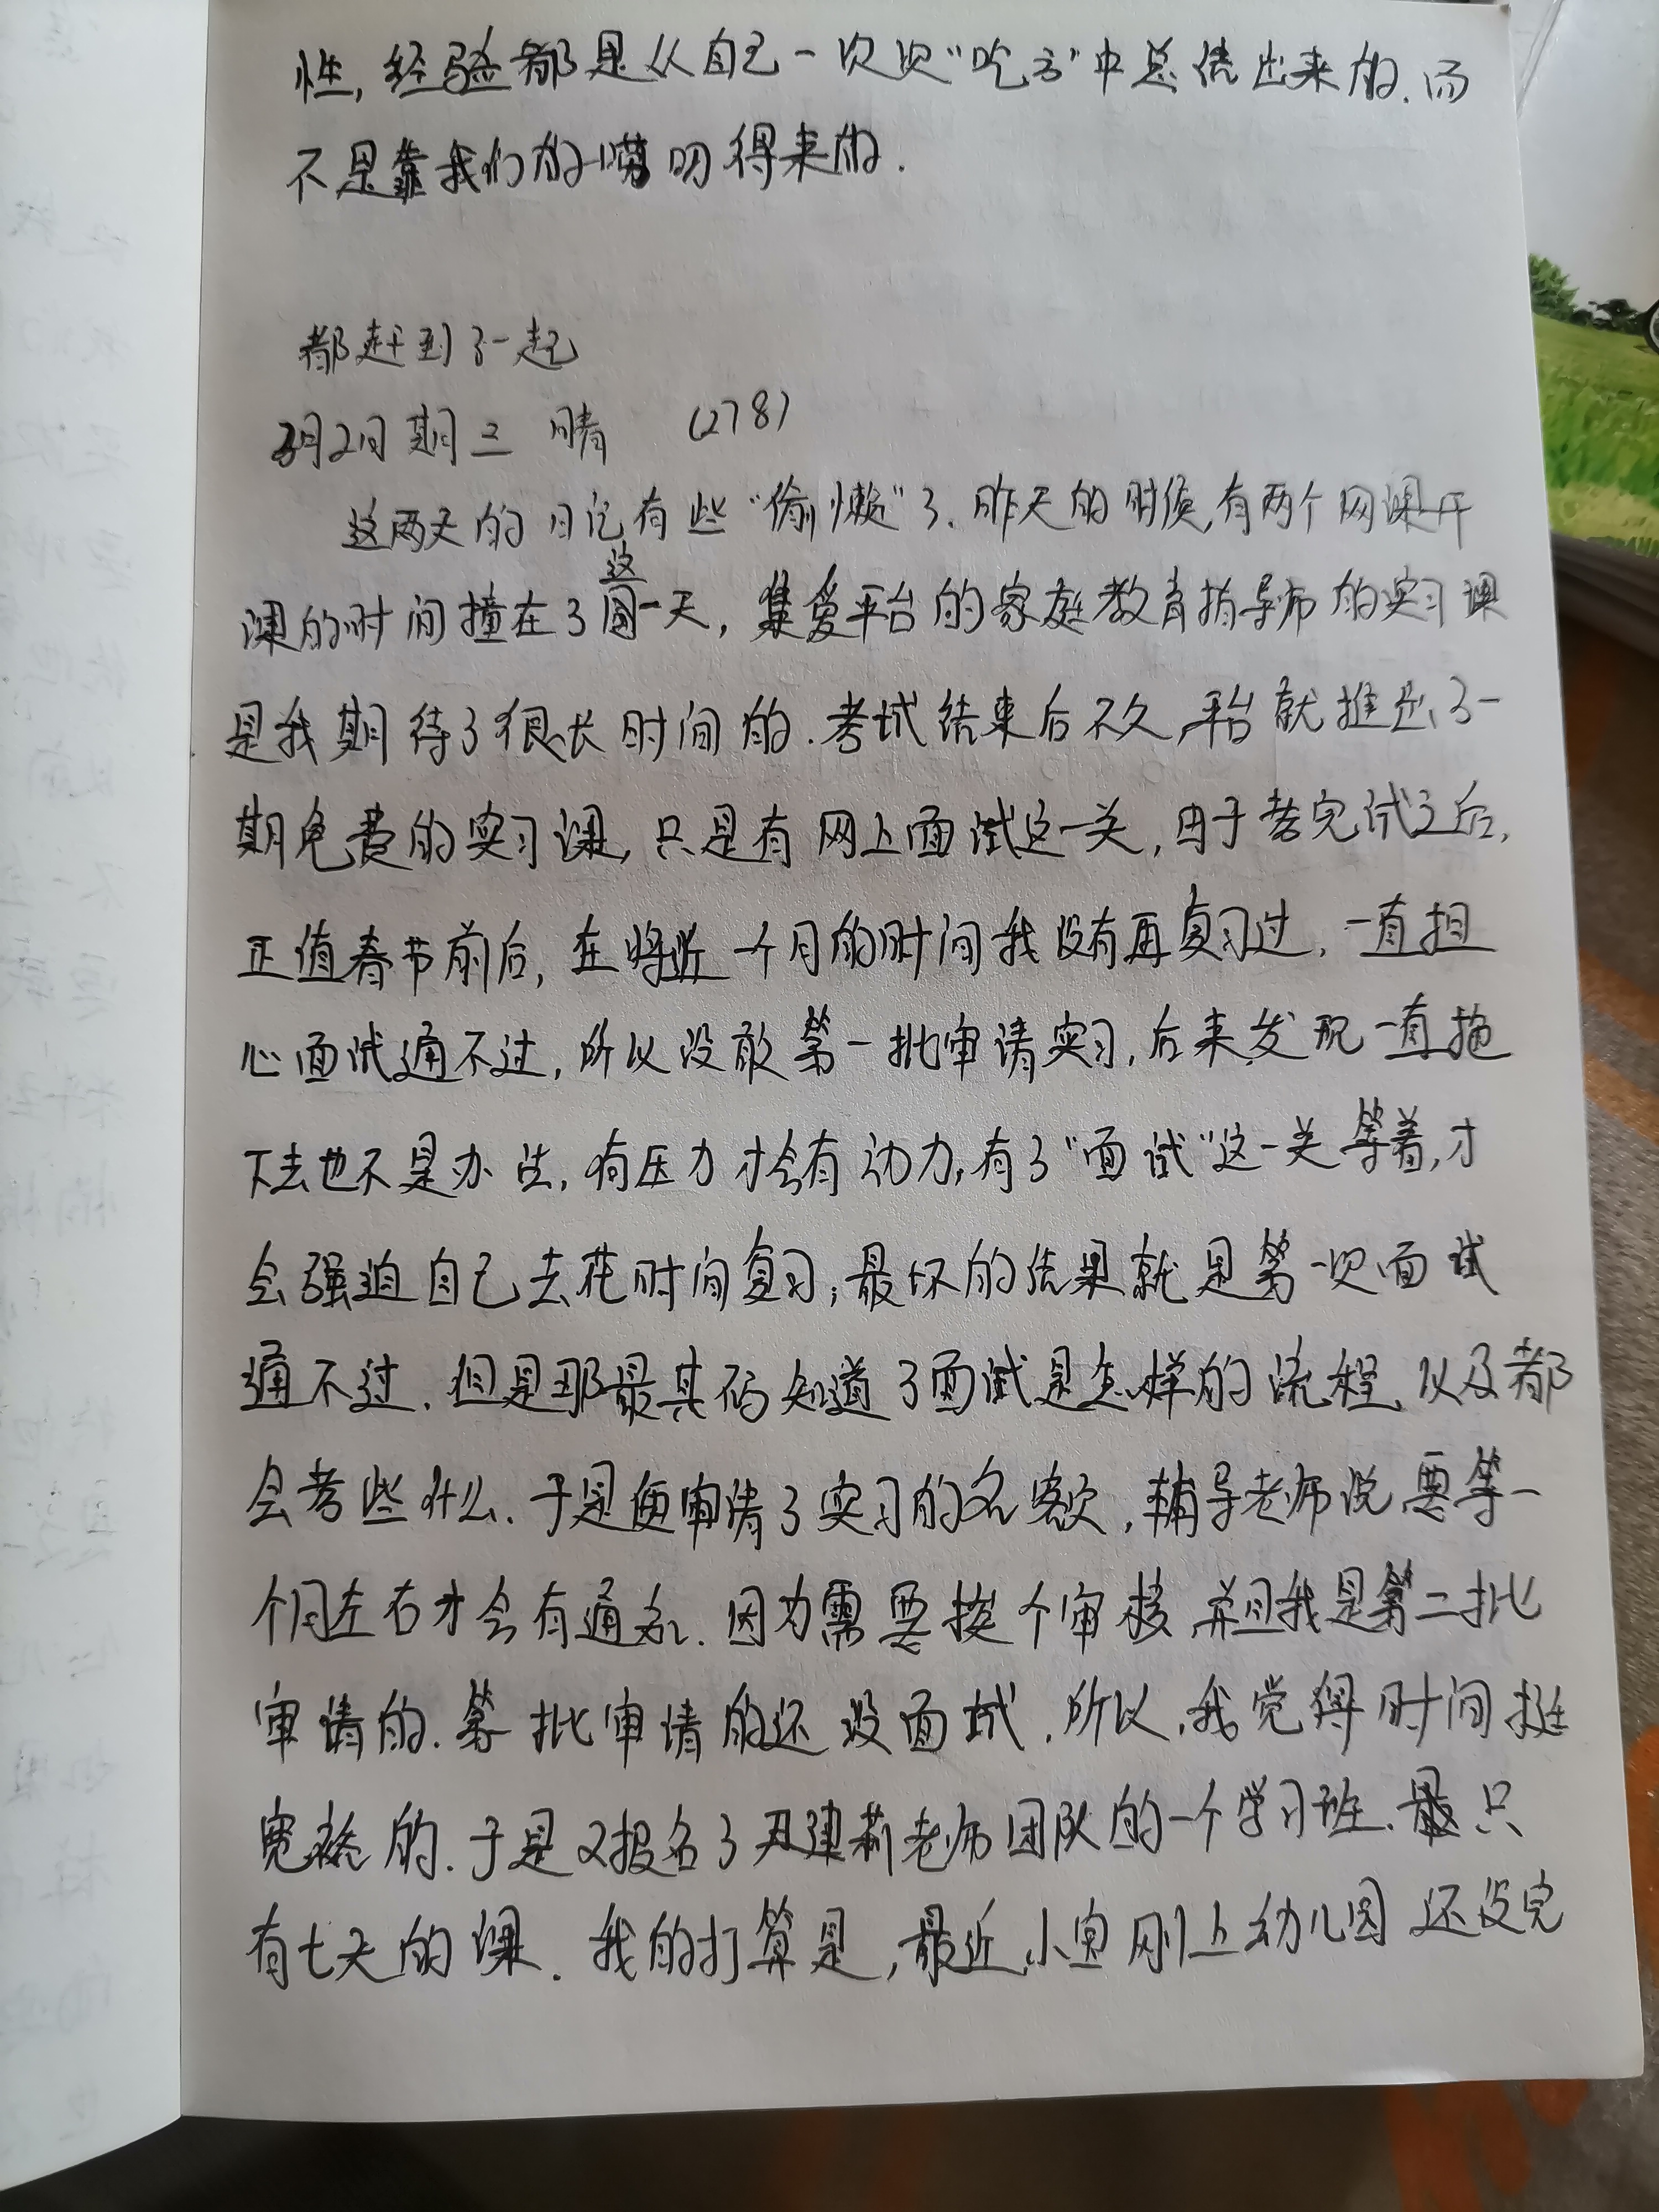 性,经验都是从自己一次次“吃亏”中总结出来的.而
不是靠我们的唠叨得来的.
都赶到了一起
3月2日 期三 晴 (278)
这两天的日记有些“偷懒”了.昨天的时候,有两个网课开
这
课的时间撞在了同一天,集爱平台的家庭教育指导师的实习课
是我期待了很长时间的.考试结束后不久,平台就推出了一
期免费的实习课,只是有网上面试这一关,由于考完试之后,
正值春节前后,在将近一个月的时间我没有再复习过,一直担
心面试通不过,所以没敢第一批申请实习,后来发现一直拖
下去也不是办法,有压力才会有动力,有了“面试”这一关等着,才
会强迫自己去花时间复习,最坏的结果就是第一次面试
通不过.但是那最其码知道了面试是怎样的流程,以及都
会考些什么.于是便申请了实习的名额,辅导老师说要等一
个月左右才会有通知.因为需要挨个审核,并且我是第二批
审请的.第批审请的还没面试.所以,我觉得时间挺
宽裕的.于是又报名了尹建莉老师团队的一个学习班.最只
有七天的课.我的打算是,最近小宝刚上幼儿园还没完